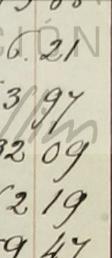 6. 21
3 97
32 09
2 19
9 47